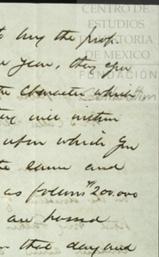 CENTRO DE
ESTUDIOS
DE HISTORIA
DE MEXICO
FUNDACION
to buy the prop
year, they
the character which
will within
upon which Gen
the same and
as follows $200.000
are bound
that day and